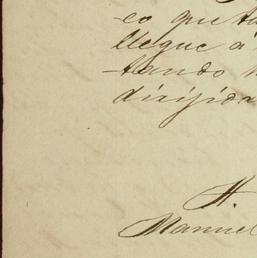 -co que ta
llegue á
-tando
dirijida
H.
Manuel